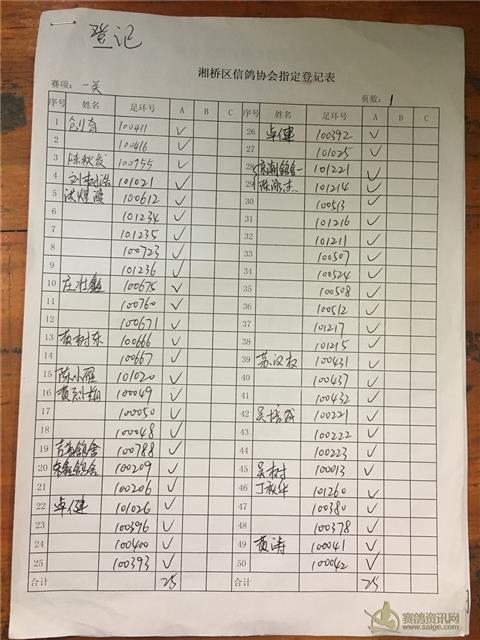 登记
湘桥区信鸽协会指定登记表
赛项：一关 页数：1
序号 姓名 足环号 A B C 序号 姓名 足环号 A B C
1 创奇 100411 ✓ 26 卓健 100392 ✓
2 100416 ✓ 27 101025 ✓
3 陈秋发 100755 ✓ 28 101221 ✓
4 101021 ✓ 29 101214 ✓
5 洪煜滨 100612 ✓ 30 100513 ✓
6 101234 ✓ 31 101216 ✓
7 101235 ✓ 32 101211 ✓
8 100723 ✓ 33 100507 ✓
9 101236 ✓ 34 100524 ✓
10 庄壮鑫 100675 ✓ 35 100508 ✓
11 100760 ✓ 36 100512 ✓
12 100671 ✓ 37 101217 ✓
13 黄树东 100666 ✓ 38 101215 ✓
14 100667 ✓ 39 苏汉权 100431 ✓
15 陈小雁 101020 ✓ 40 100437 ✓
16 100049 ✓ 41 100432 ✓
17 100050 ✓ 42 吴培成 100221 ✓
18 100048 ✓ 43 100222 ✓
19 鸽舍 100788 ✓ 44 100223 ✓
20 鸽舍 100209 ✓ 45 吴树 100013 ✓
21 100206 ✓ 46 丁秋华 101260 ✓
22 卓健 101026 ✓ 47 100380 ✓
23 100396 ✓ 48 100378 ✓
24 100400 ✓ 49 黄涛 100041 ✓
25 100393 ✓ 50 100042 ✓
合计 25 合计 25
赛鸽资讯网
www.saige.com